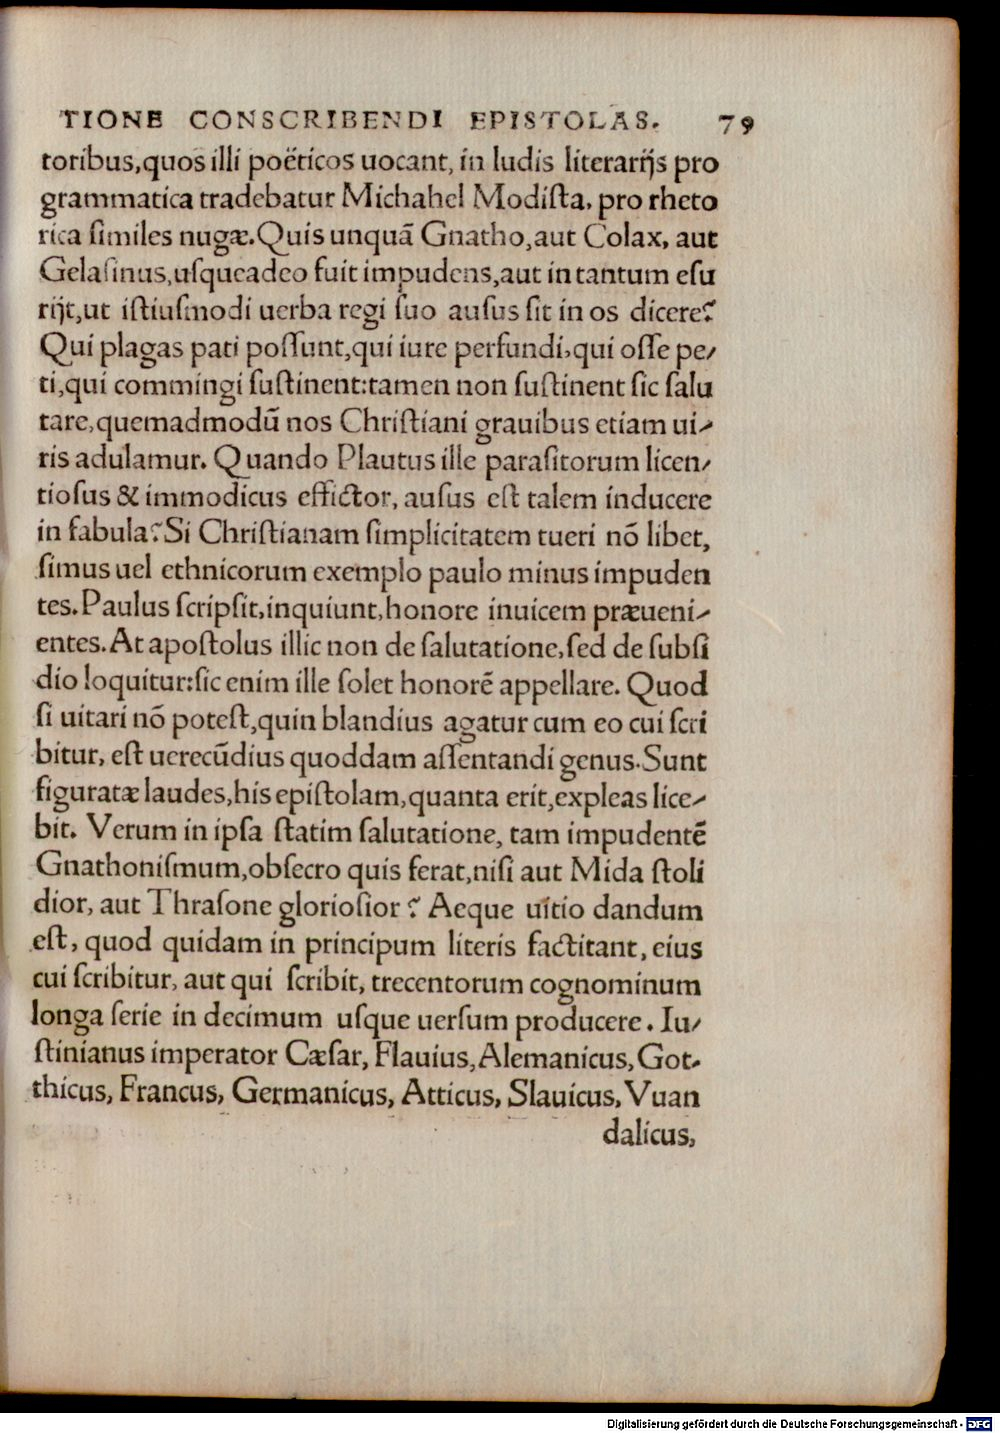 TIONE CONSCRIBENDI EPISTOLAS. 79
toribus,quos illi poëticos uocant, in ludis literarijs pro
grammatica tradebatur Michahel Modiſta, pro rheto
rica ſimiles nugæ.Quis unquã Gnatho,aut Colax, aut
Gelaſinus,uſqueadeo fuit impudens,aut in tantum eſu
rijt,ut iſtiuſmodi uerba regi ſuo auſus ſit in os dicere?
Qui plagas pati poſſunt,qui iure perfundi,qui oſſe pe/
ti,qui commingi ſuſtinent:tamen non ſuſtinent ſic ſalu
tare,quemadmodũ nos Chriſtiani grauibus etiam ui/
ris adulamur. Quando Plautus ille paraſitorum licen/
tioſus & immodicus effictor, auſus eſt talem inducere
in fabula? Si Chriſtianam ſimplicitatem tueri nõ libet,
ſimus uel ethnicorum exemplo paulo minus impuden
tes. Paulus ſcripſit,inquiunt,honore inuicem præueni/
entes. At apoſtolus illic non de ſalutatione,ſed de ſubſi
dio loquitur:ſic enim ille ſolet honorẽ appellare. Quod
ſi uitari nõ poteſt,quin blandius agatur cum eo cui ſcri
bitur, eſt uerecũdius quoddam aſſentandi genus. Sunt
figuratæ laudes,his epiſtolam,quanta erit,expleas lice/
bit. Verum in ipſa ſtatim ſalutatione, tam impudentẽ
Gnathoniſmum,obſecro quis ferat,niſi aut Mida ſtoli
dior, aut Thraſone glorioſior? Aeque uitio dandum
eſt, quod quidam in principum literis factitant, eius
cui ſcribitur, aut qui ſcribit, trecentorum cognominum
longa ſerie in decimum uſque uerſum producere. Iu/
ſtinianus imperator Cæſar, Flauius, Alemanicus, Got-
thicus, Francus, Germanicus, Atticus, Slauicus, Vuan
dalicus,
Digitalisierung gefördert durch die Deutsche Forschungsgemeinschaft - DFG